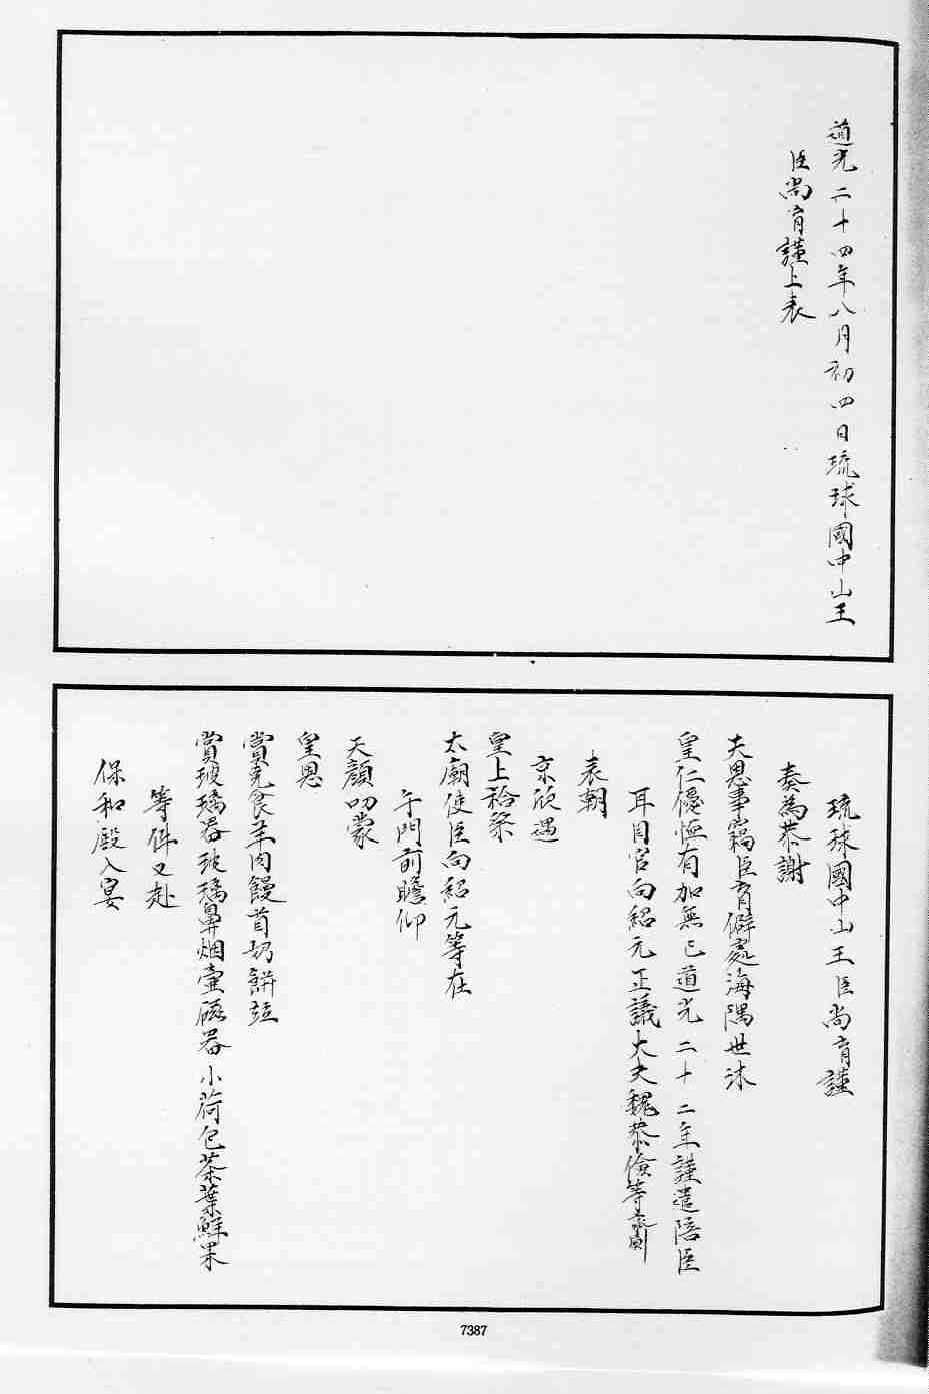 道光二十四年八月初四日琉球國中山王
臣尚育謹上表
琉球國中山王臣尚育謹
奏為恭謝
天恩事竊臣育僻處海隅世沐
皇仁優恤有加無已道光二十二年謹遣陪臣
耳目官向紹元正議大夫魏恭儉等齎
表朝
京欣遇
皇上祫祭
太廟使臣向紹元等在
午門前瞻仰
天顏叨蒙
皇恩
賞克食羊肉饅首奶餅並
賞玻璃器玻璃鼻烟壷磁器小荷包茶葉鮮果
等件又赴
保和殿入宴
7387